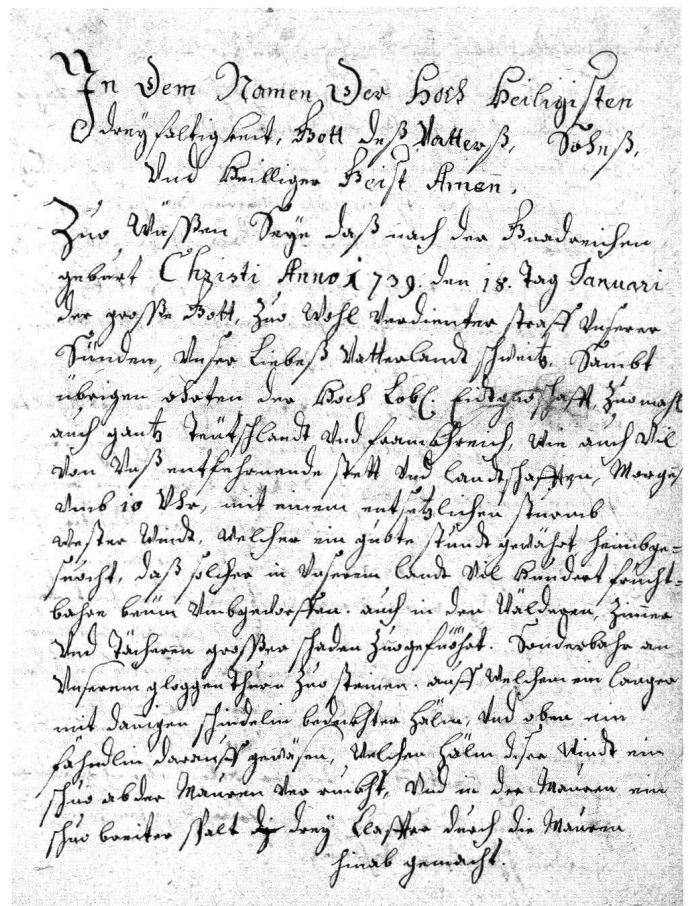 In dem Namen der Hoch Heiligisten
dreyfaltigkeit, Gott deß Vatterß, Sohnß,
Vnd Heilliger Geist Amen.
Zuo Wüssen Seye daß nach der Gnadreichen
geburt Christi Anno 1739. den 18. Tag Januari
der grosse Gott, Zuo Wohl verdienter straff Vnserer
Sünden, Vnser Liebeß Vatterlandt schweitz, Sambt
übrigen ohrten der Hoch Lobl. Eidtgnoschafft, Zuomahl
auch gantz Teütschlandt Vnd Frankhreich, wie auch Vil
von Vnß entfehrnende stett Vnd landtschafften, Morgenß
Vmb 10 Vhr, mit einem entsetzlichen sturmb
wester Windt, welcher ein guote stundt gewährt heimbge-
suocht, daß solcher in Vnserem landt Vil hundert frucht-
bahre beüm Vmbgeworffen. auch in den Wälderen, Zimmer
Vnd Tächeren grossen schaden Zuogefüöhrt. Sonderbahr an
Vnserem gloggen Thurn Zuo steinen. auff Welchem ein Langer
mit dannigen schindelin bedeckhter Hälm, Vnd oben ein
fähndlin darauff gewäsen, Welchen Hälm diser Windt ein
schuo ab der Mauren verruckht, Vnd in der Mauren ein
schuo breiter spalt drey Claffter durch die Mauren
hinab gemacht.